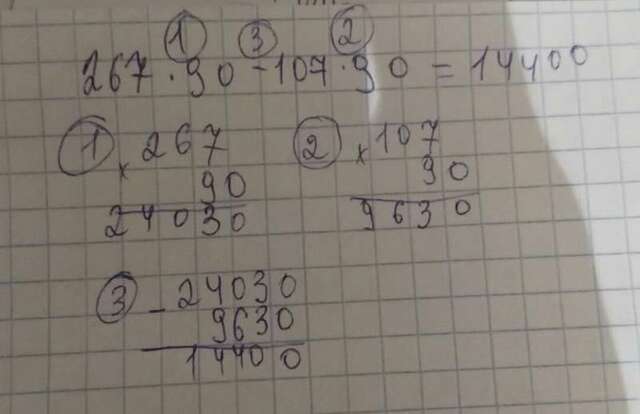 ① ③ ②
267 · 90 - 107 · 90 = 14400
① × 267 ② × 107
90 90
24030 9630
③ - 24030
9630
14400